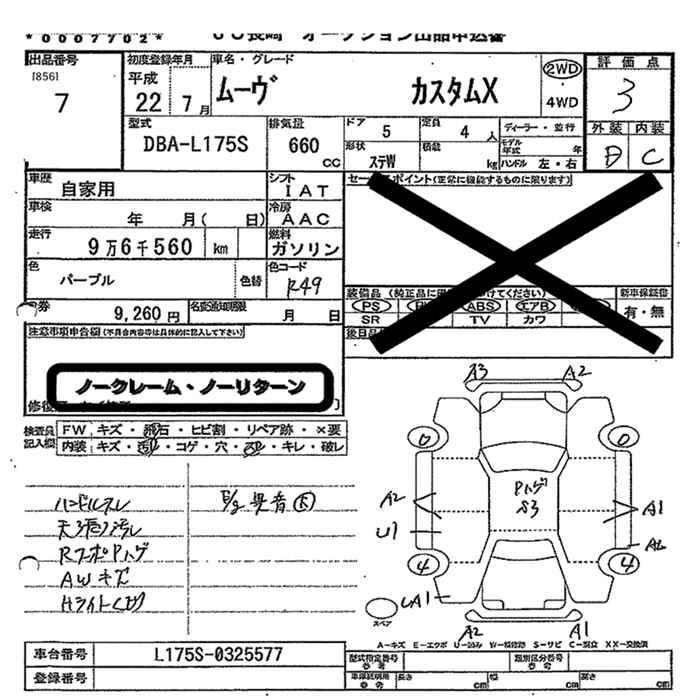 *0007702*
JU長崎 オークション出品申込書
出品番号
[856]
7
初度登録年月
平成
22年 7月
車名・グレード
ムーヴ カスタムX
2WD
4WD
評価点
3
外装 内装
D C
型式
DBA-L175S
排気量
660
CC
ドア
5
定員
4 人
形状
ステW
積載
kg
ディーラー・並行
モデル年式 年
ハンドル 左・右
車歴
自家用
シフト
IAT
車検
年 月( 日)
冷房
AAC
走行
9万6千560 km
燃料
ガソリン
色
パープル
色替
色コード
R49
券
9,260円
名変通知期限
月 日
セールスポイント(正常に機能するものに限ります)
装備品
PS
ABS
エアB
SR
TV
カワ
新車保証書
有・無
後日品
注意事項申告欄(不具合内容等は具体的に記入して下さい)
ノークレーム・ノーリターン
検査員記入欄
FW キズ・飛石・ヒビ割・リペア跡・×要
内装 キズ・汚れ・コゲ・穴・スレ・キレ・破レ
ハンドルスレ
天張り汚れ
RスポPハゲ
AWキズ
Hライトくもり
E/g異音大
A3
A2
0
0
A2
U1
Pハゲ
S3
A1
A2
4
4
A1
スペア
A2
A1
A-キズ E-エクボ U-凹み W-補修跡 S-サビ C-腐食 XX-交換済
車台番号
L175S-0325577
登録番号
型式指定番号
参考
類別区分番号
参考
車庫証明用
参考
長さ cm
幅 cm
高さ cm